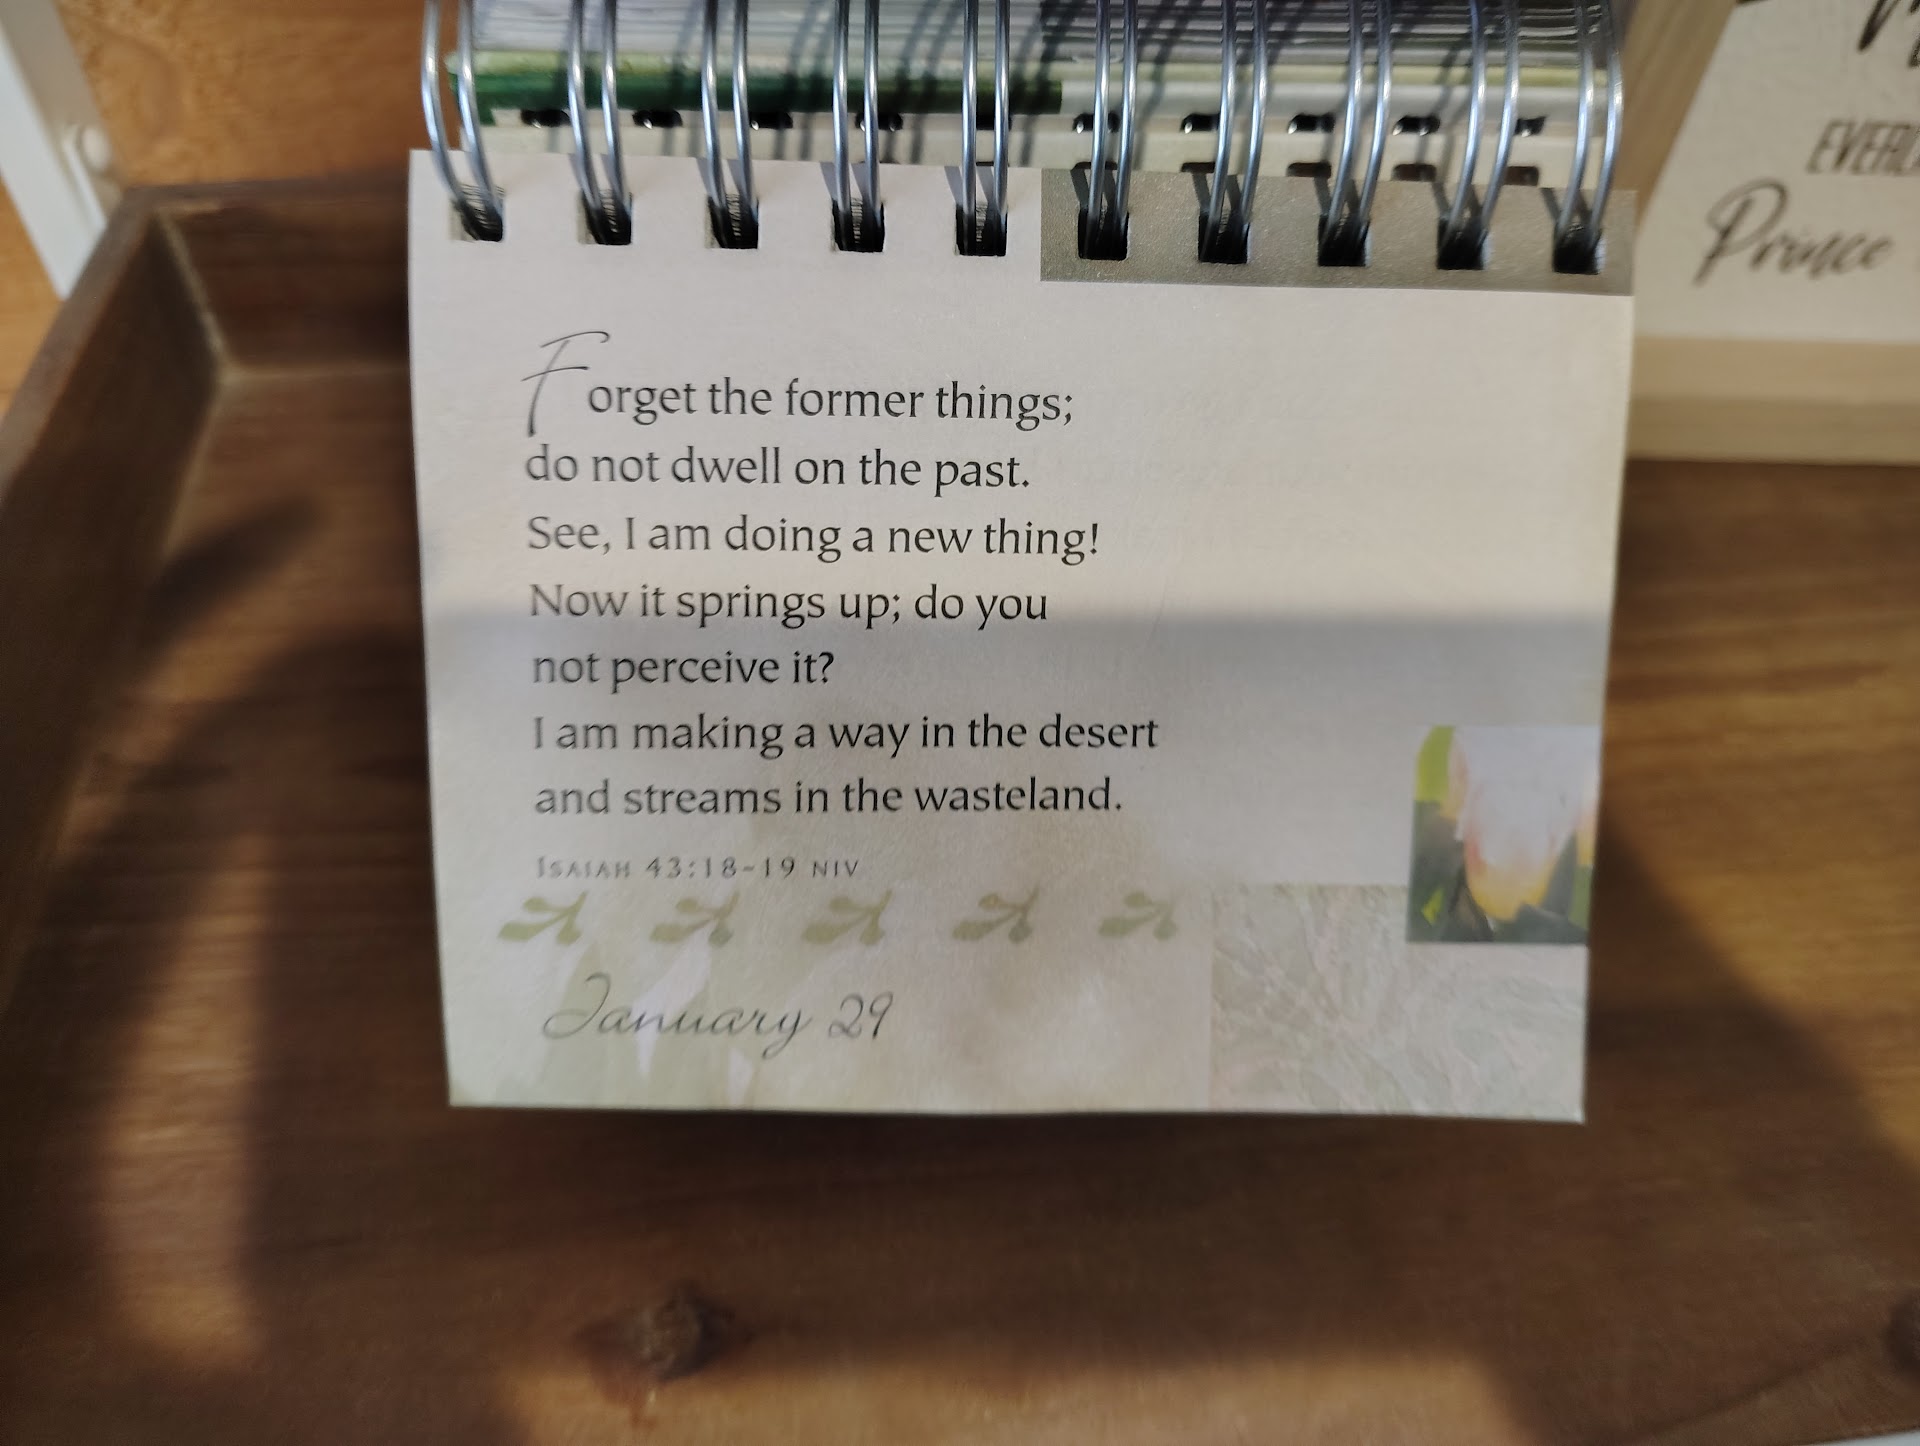 Forget the former things;
do not dwell on the past.
See, I am doing a new thing!
Now it springs up; do you
not perceive it?
I am making a way in the desert
and streams in the wasteland.
ISAIAH 43:18-19 NIV
January 29
Prince